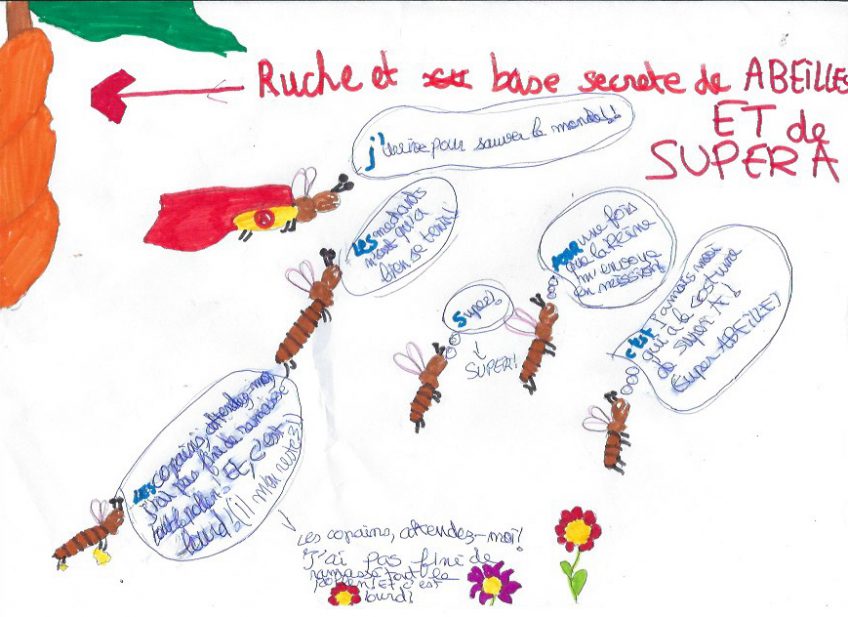 Ruche et base secrete de ABEILLES
ET de
SUPER A
j'arrive pour sauver le monde!!
LES méchants
n'ont qu'à
bien se tenir!
POUR une fois
que la Reine
m'envoie
en mission!
Super!
SUPER!
c'est jamais moi
qui a le costume
de super A!
(Super-ABEILLE)
LES copains, attendez-moi
j'ai pas finé de ramassé
tout le pollen! Et, c'est
lourd!
Les copains, attendez-moi!
J'ai pas finé de
ramassé tout le
pollen! Et c'est
lourd!